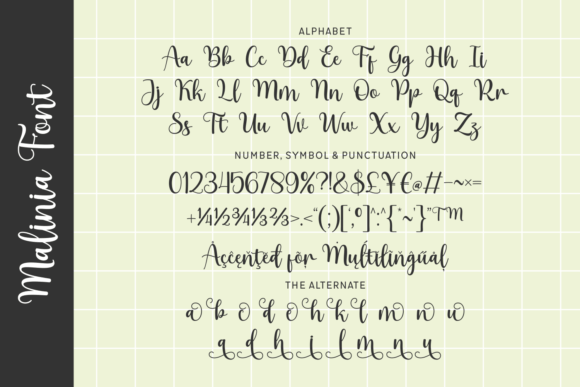 Malinia Font
ALPHABET
Aa Bb Cc Dd Ee Ff Gg Hh Ii
Jj Kk Ll Mm Nn Oo Pp Qq Rr
Ss Tt Uu Vv Ww Xx Yy Zz
NUMBER, SYMBOL & PUNCTUATION
0123456789%?!&$£¥€@#-~×=
+¼½¾⅓⅔>.<“(;)[‚º]^:^{*~’}”™
Accented for Multilingual
THE ALTERNATE
a b c d e h k l m n u
a d h i l m n u